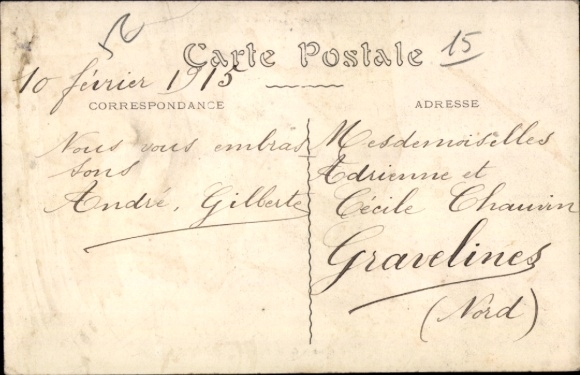 Carte Postale
15
10 février 1915
CORRESPONDANCE
Nous vous embras
sons
André, Gilberte
ADRESSE
Mesdemoiselles
Adrienne et
Cécile Chauvin
Gravelines
(Nord)